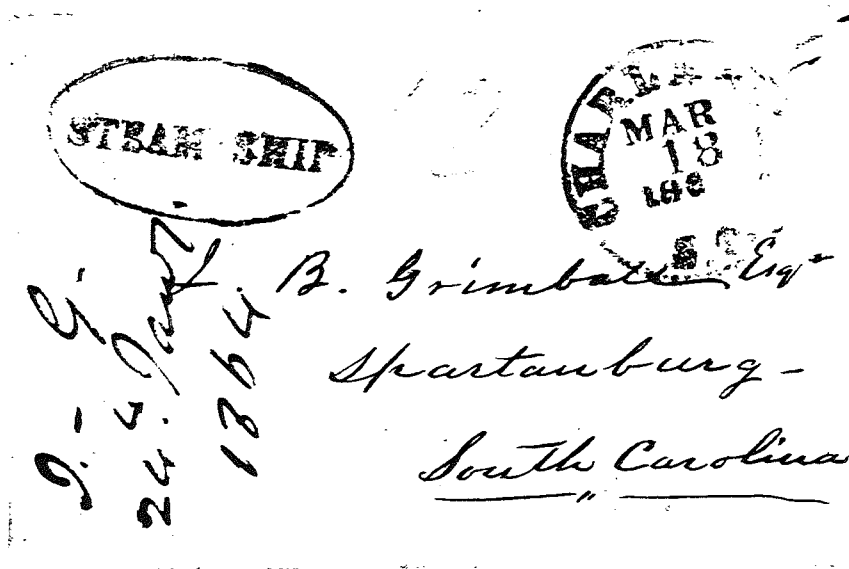 STEAM SHIP
MAR
18
L. B. Grimball Esqr
Spartanburg -
South Carolina
24. Jany.
1864